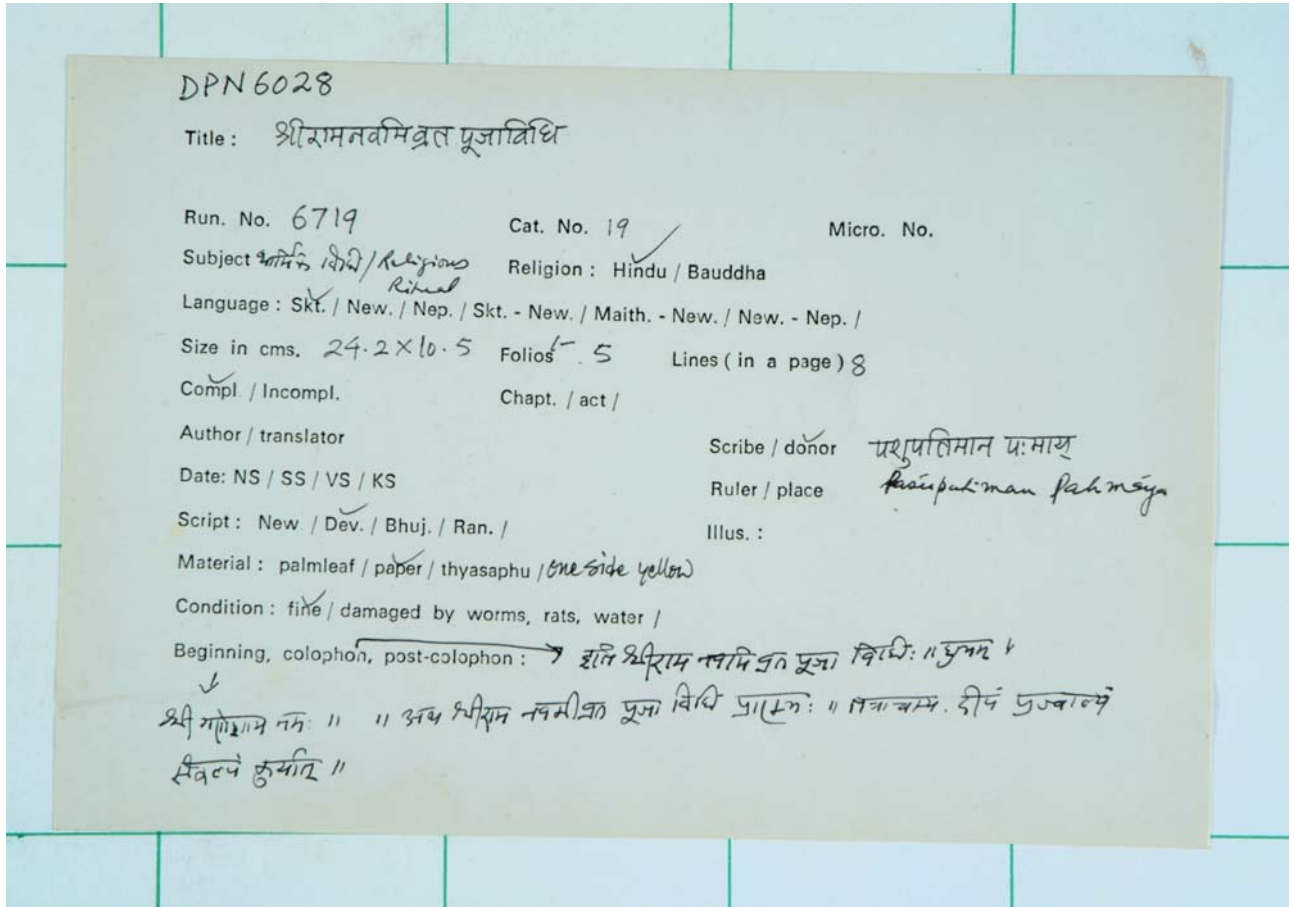 DPN 6028
Title : श्रीरामनवमिव्रत पूजाविधि
Run. No. 6719 Cat. No. 19 Micro. No.
Subject धार्मिक विधि / Religious Ritual Religion : Hindu / Bauddha
Language : Skt. / New. / Nep. / Skt. - New. / Maith. - New. / New. - Nep. /
Size in cms. 24.2 X 10.5 Folios 1-5 Lines ( in a page ) 8
Compl. / Incompl. Chapt. / act /
Author / translator Scribe / donor पशुपतिमान पःमाय्
Date: NS / SS / VS / KS Ruler / place Pasupatiman Pahmāya
Script : New. / Dev. / Bhuj. / Ran. / Illus. :
Material : palmleaf / paper / thyasaphu / one side yellow
Condition : fine / damaged by worms, rats, water /
Beginning, colophon, post-colophon : → इति श्रीराम नवमि व्रत पूजा विधिः ॥ शुभम् ।
श्री गणेशाय नमः ॥ ॥ अथ श्रीराम नवमीव्रत पूजा विधि प्रारम्भः ॥ तत्राचम्य. दीपं प्रज्वाल्य
संकल्पं कुर्यात् ॥